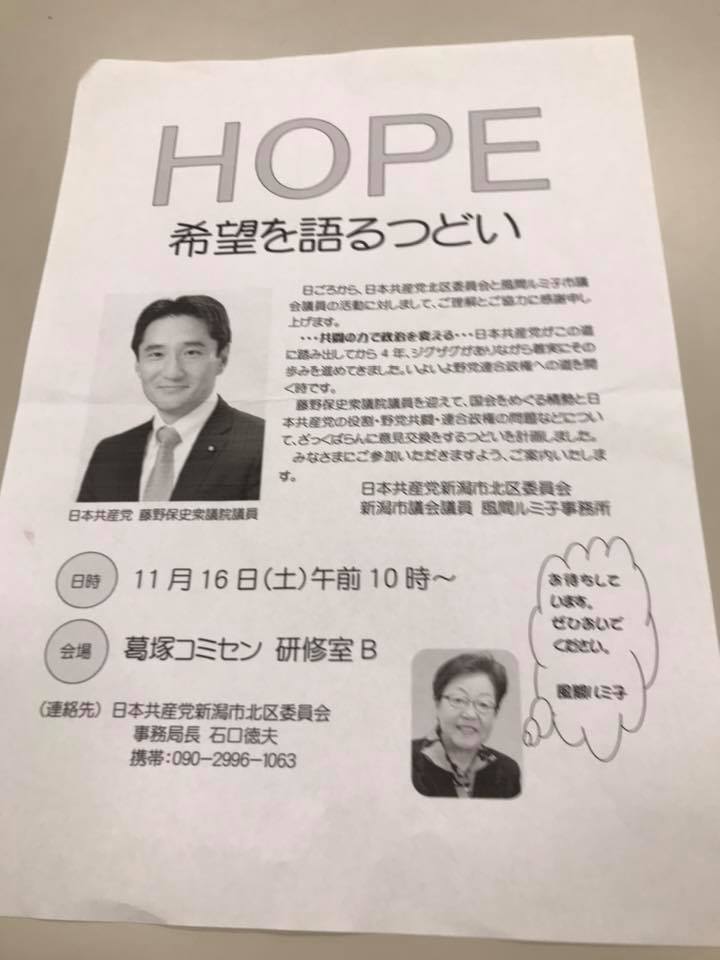 HOPE
希望を語るつどい
日ごろから、日本共産党北区委員会と風間ルミ子市議
会議員の活動に対しまして、ご理解とご協力に感謝申し
上げます。
・・・共闘の力で政治を変える・・・日本共産党がこの道
に踏み出してから4年、ジグザグがありながら着実にその
歩みを進めてきました。いよいよ野党連合政権への道を開
く時です。
藤野保史衆議院議員を迎えて、国会をめぐる情勢と日
本共産党の役割・野党共闘・連合政権の問題などについ
て、ざっくばらんに意見交換をするつどいを計画しました。
みなさまにご参加いただきますよう、ご案内いたしま
す。
日本共産党新潟市北区委員会
新潟市議会議員 風間ルミ子事務所
日本共産党 藤野保史衆議院議員
日時 11月16日(土)午前10時～
会場 葛塚コミセン 研修室B
(連絡先) 日本共産党新潟市北区委員会
事務局長 石口徳夫
携帯:090-2996-1063
お待ちして
います。
ぜひおいで
ください。
風間ルミ子